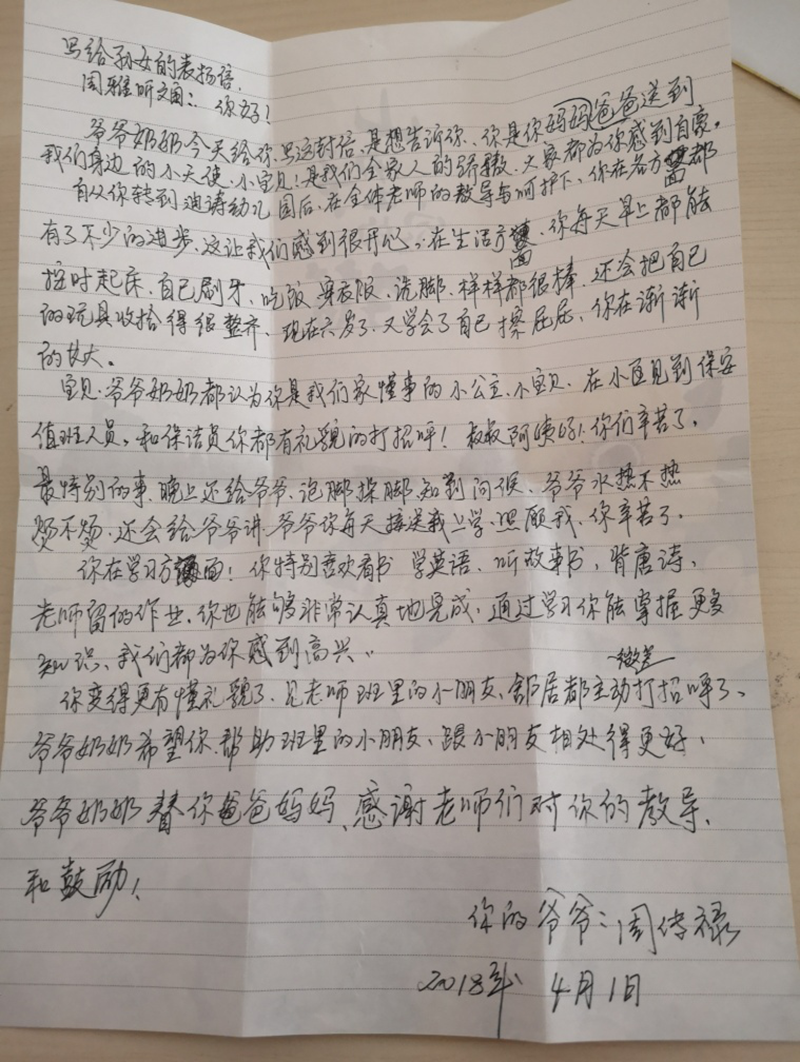 写给孙女的表扬信.
周雅昕: 你好!
爷爷奶奶今天给你写这封信、是想告诉你、你是你妈妈爸爸送到
我们身边的小天使、小宝贝!是我们全家人的骄傲、大家都为你感到自豪。
自从你转到迪诗幼儿园后、在全体老师的教导与呵护下、你在各方面都
有了不少的进步、这让我们感到很开心、在生活方面、你每天早上都能
按时起床、自己刷牙、吃饭 穿衣服、洗脚、样样都很棒、还会把自己
的玩具收拾得很整齐、现在六岁了、又学会了自己擦屁屁、你在渐渐
的长大。
宝贝、爷爷奶奶都认为你是我们家懂事的小公主、小宝贝、在小区见到保安
值班人员、和保洁员你都有礼貌的打招呼!叔叔阿姨好!你们辛苦了。
最特别的事、晚上还给爷爷、泡脚揉脚、知到问候、爷爷水热不热
烫不烫、还会给爷爷讲、爷爷你每天接送我上学、照顾我、你辛苦了.
你在学习方面!你特别喜欢看书 学英语、听故事书、背唐诗、
老师留的作业、你也能够非常认真地完成、通过学习你能掌握更多
知识、我们都为你感到高兴、
你变得更有懂礼貌了、见老师班里的小朋友、邻居都主动打招呼了、
爷爷奶奶希望你、帮助班里的小朋友、跟小朋友相处得更好、
爷爷奶奶替你爸爸妈妈、感谢老师们对你的教导、
和鼓励!
你的爷爷:周传禄
2018年 4月1日